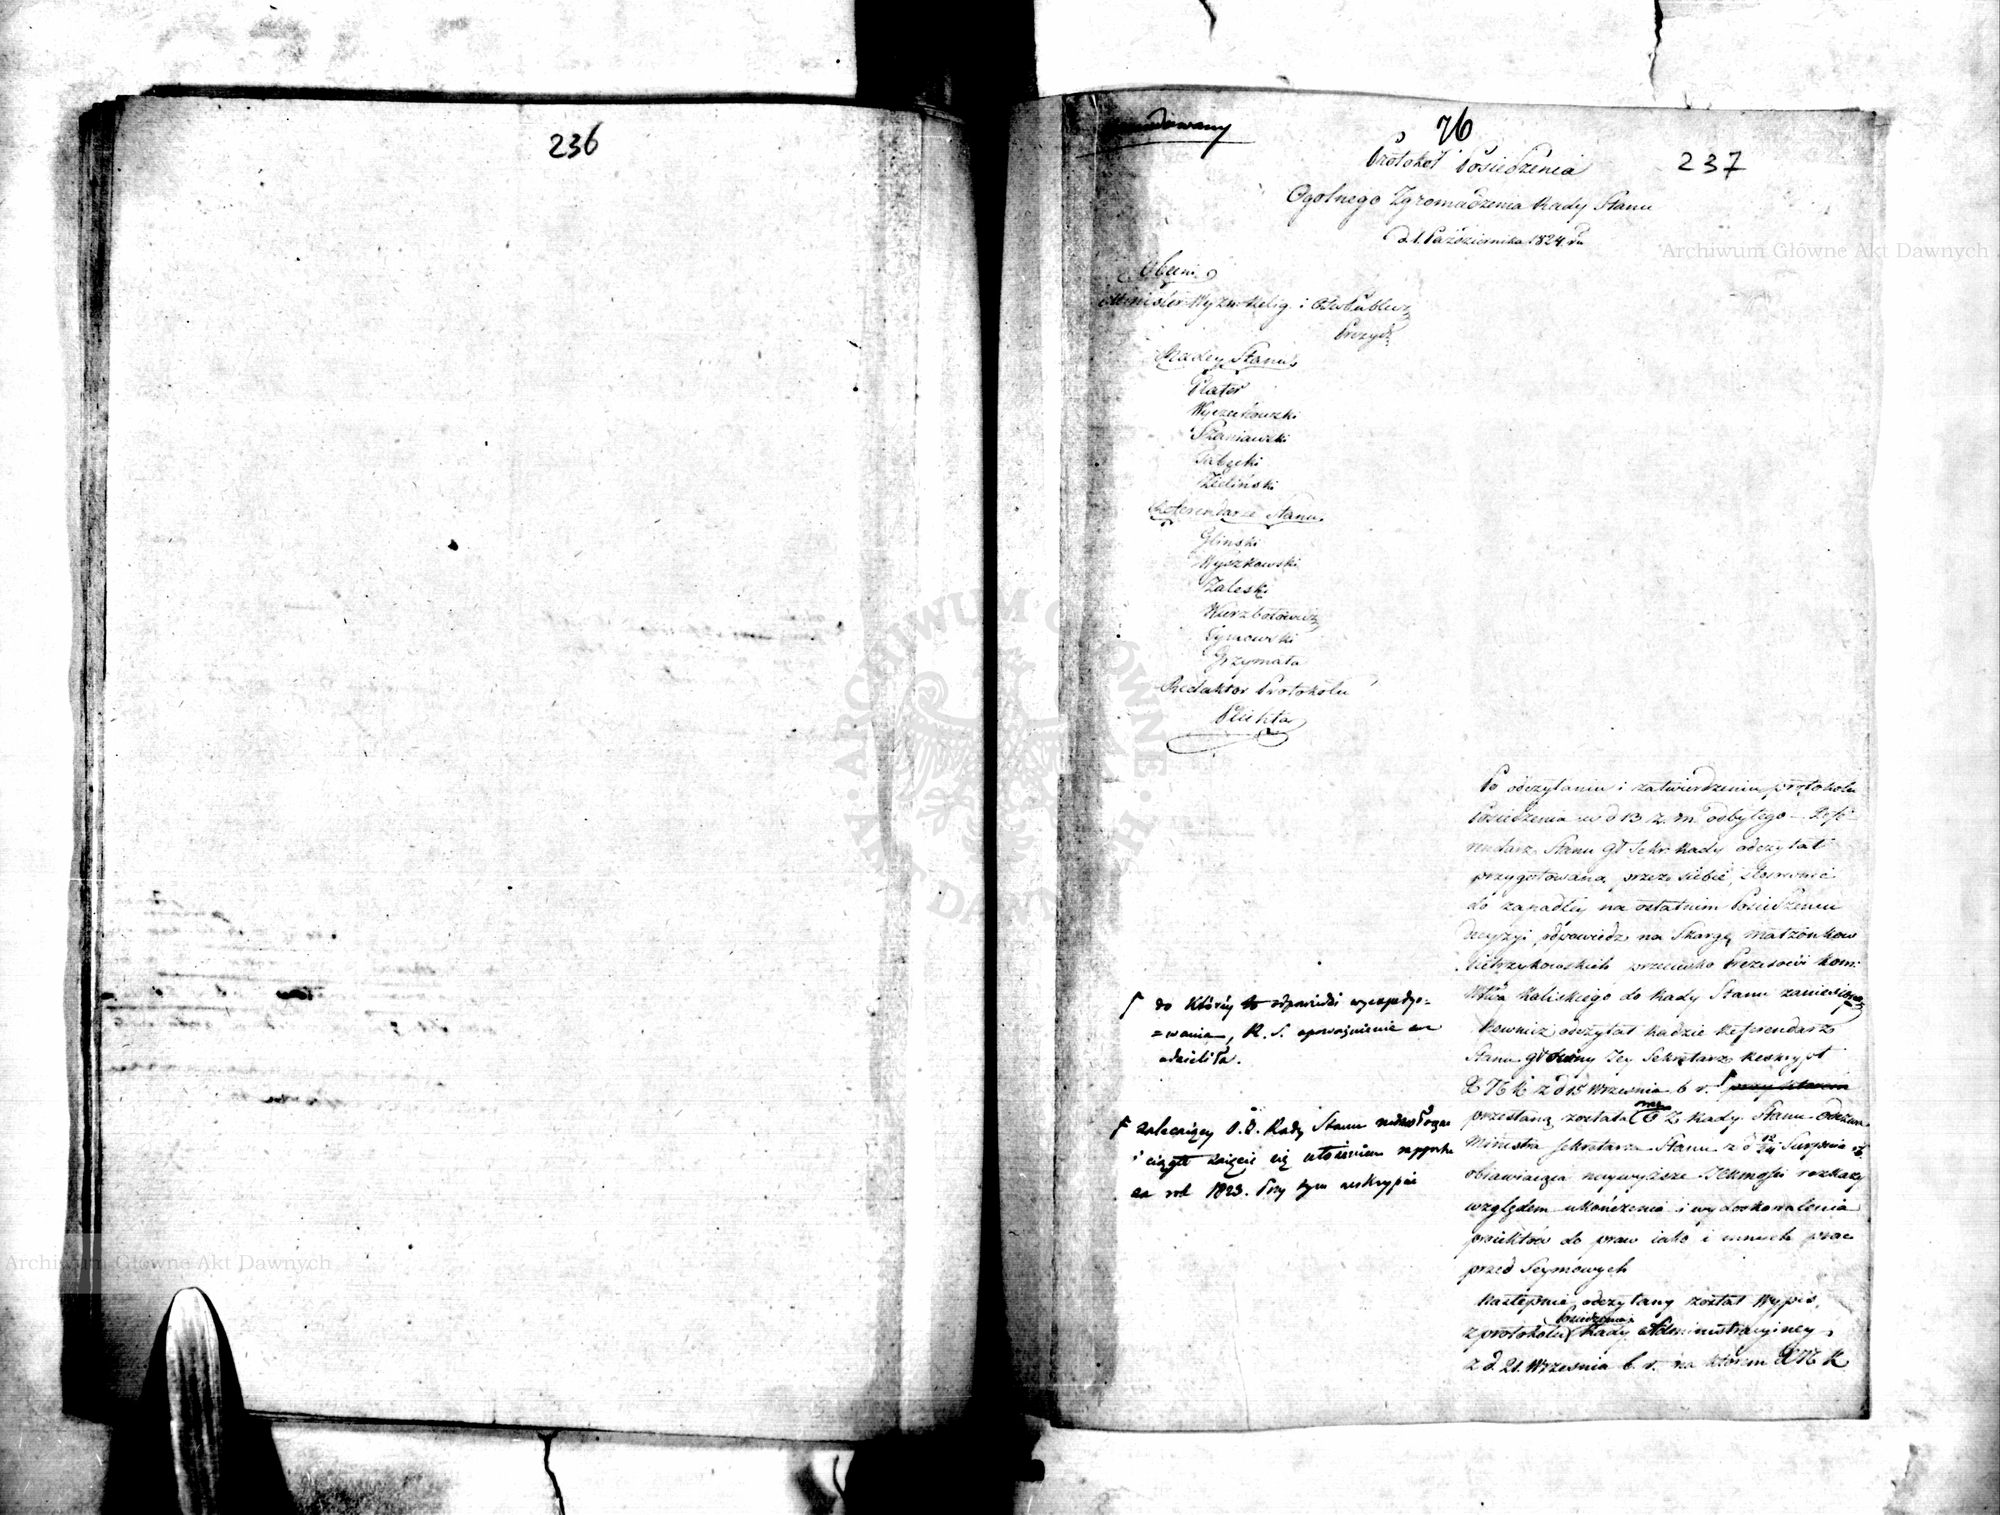 236
76
237
Protokół Posiedzenia
Ogolnego Zgromadzenia Rady Stanu
d. 1. Października 1824. r.
Obecni
Minister Wyzn. Relig. i Ośw. Publicz.
Prezyd.
Radcy Stanu
Plater
Wyczechowski
Szaniawski
Gałęcki
Zieliński
Referendarze Stanu
Gliński
Wyszkowski
Zaleski
Wierzbołowicz
Tymowski
Grzymała
Redaktor Protokołu
Plichta
Po odczytaniu i zatwierdzeniu protokołu
Posiedzenia w d 13 z. m. odbytego – Refe-
rendarz Stanu Gł. Sekr. Rady odczytał
przygotowaną przez siebie, stosownie
do zapadłey na ostatnim Posiedzeniu
decyzyi, odpowiedz na Skargę małżonkow
Pietrzykowskich przeciwko Prezesowi Kom:
Wdztwa Kaliskiego do Rady Stanu zaniesioną
ſ do którey odpowiedzi wyexpedyo=
=wania, R. S. upoważnienie
udzieliła.
Rownież odczytał Radzie Referendarz
Stanu główny Jey Sekretarz Reskrypt
X N K z d 15 Września b. r. ſ
przesłaną została Rady Stanu Odezwa
Ministra Sekretarza Stanu z d 12/24 Sierpnia
obiawiaiąca naywyższe JKMości rozkazy
względem ukończenia i wydoskonalenia
proiektów do praw iako i innych prac
przed Seymowych
ſ zalecaiący O. Z. Rady Stanu
i ciągłe zaięcie się ułożeniem rapportu
za rok 1823. Przy tym reskrypcie
Następnie odczytany został Wypis,
z protokołu Posiedzenia Rady Administracyiney
z d. 21. Września b. r. na którem X N K